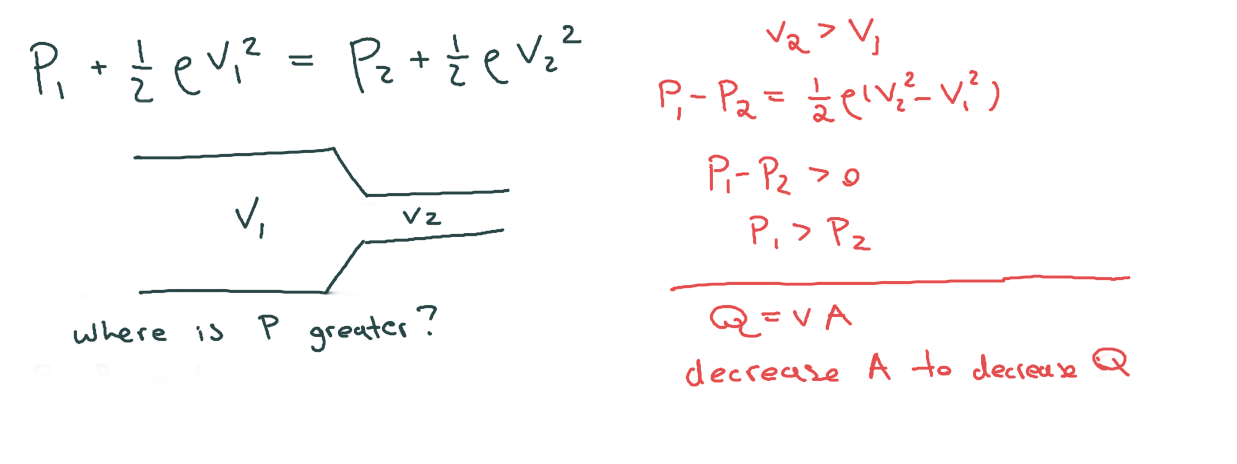 P₁ + ½ ρ V₁² = P₂ + ½ ρ V₂²
V₁
V2
where is P greater?
V₂ > V₁
P₁ - P₂ = ½ ρ(V₂² - V₁²)
P₁ - P₂ > 0
P₁ > P₂
Q = V A
decrease A to decrease Q